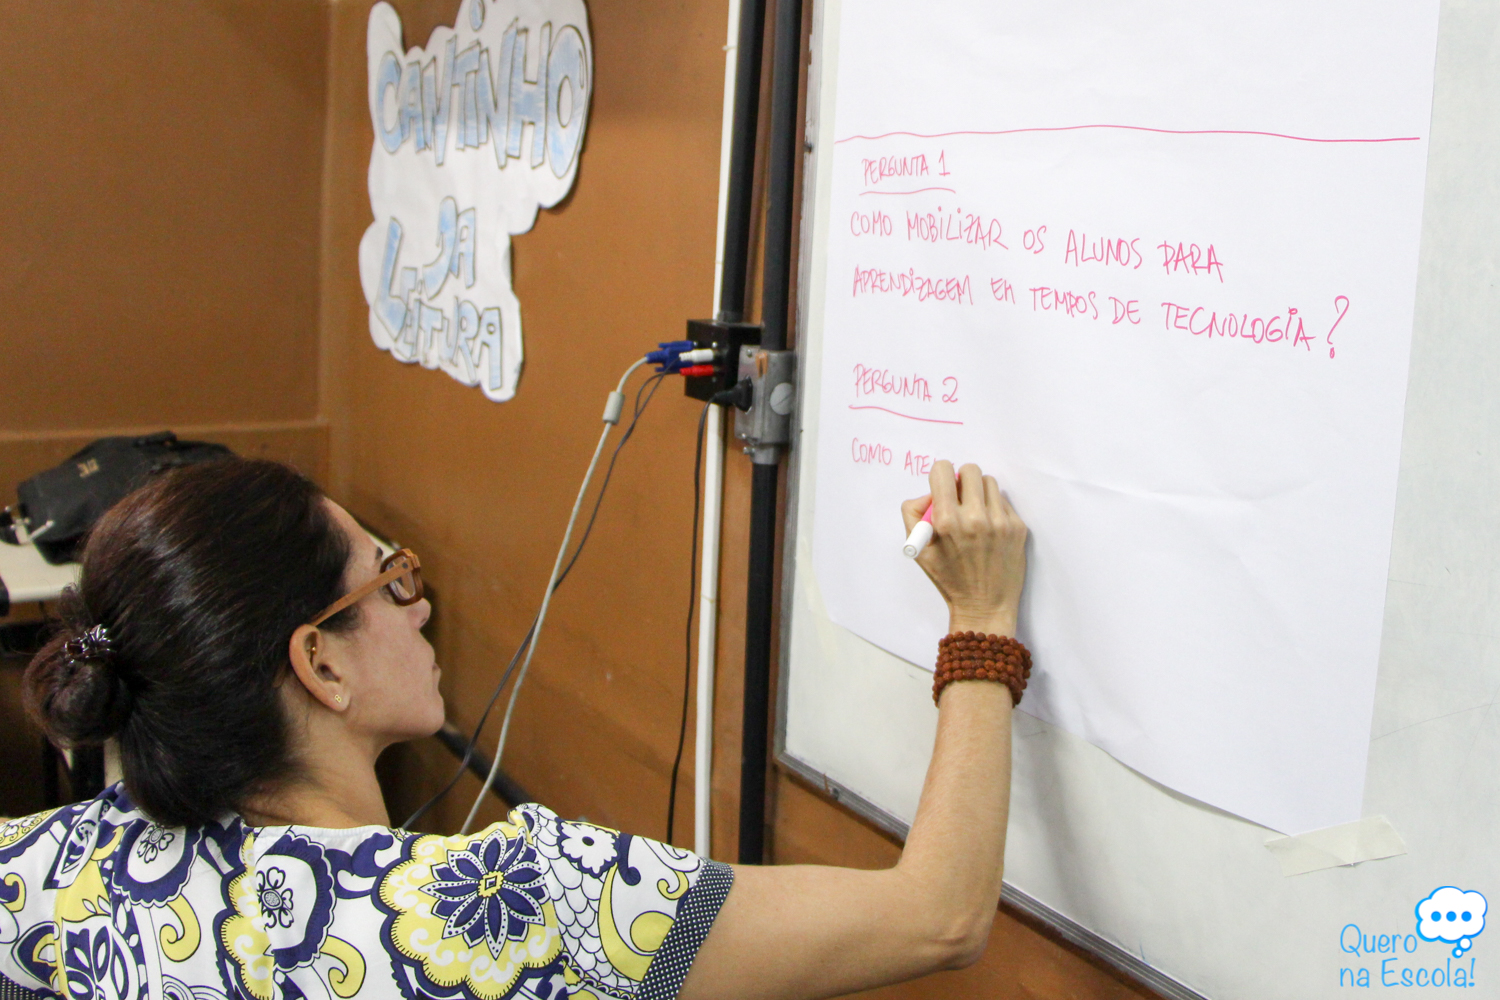 CANTINHO
DA
LEITURA
PERGUNTA 1
COMO MOBILIZAR OS ALUNOS PARA
APRENDIZAGEM EM TEMPOS DE TECNOLOGIA?
PERGUNTA 2
COMO ATE
Quero
na Escola!